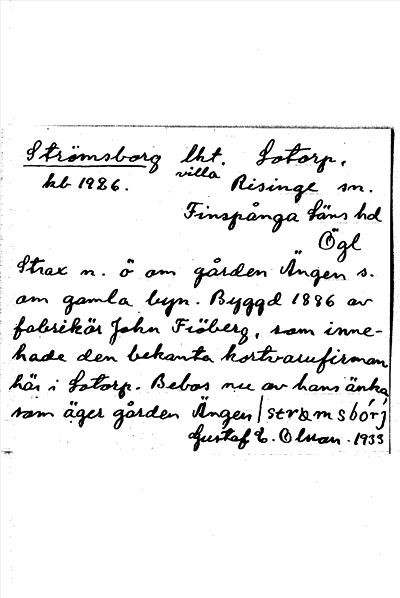 Strömsborg lht. Sotorp,
kb 1926. villa Risinge sn.
Finspånga läns hd
Ögl
Strax n. ö om gården Ängen s.
om gamla byn. Byggd 1886 av
fabrikör John Fiöberg, som inne-
hade den bekanta kortvarufirman
här i Sotorp. Bebos nu av hans änka
som äger gården Ängen | strømsbór j
Gustaf E. Olsson. 1933